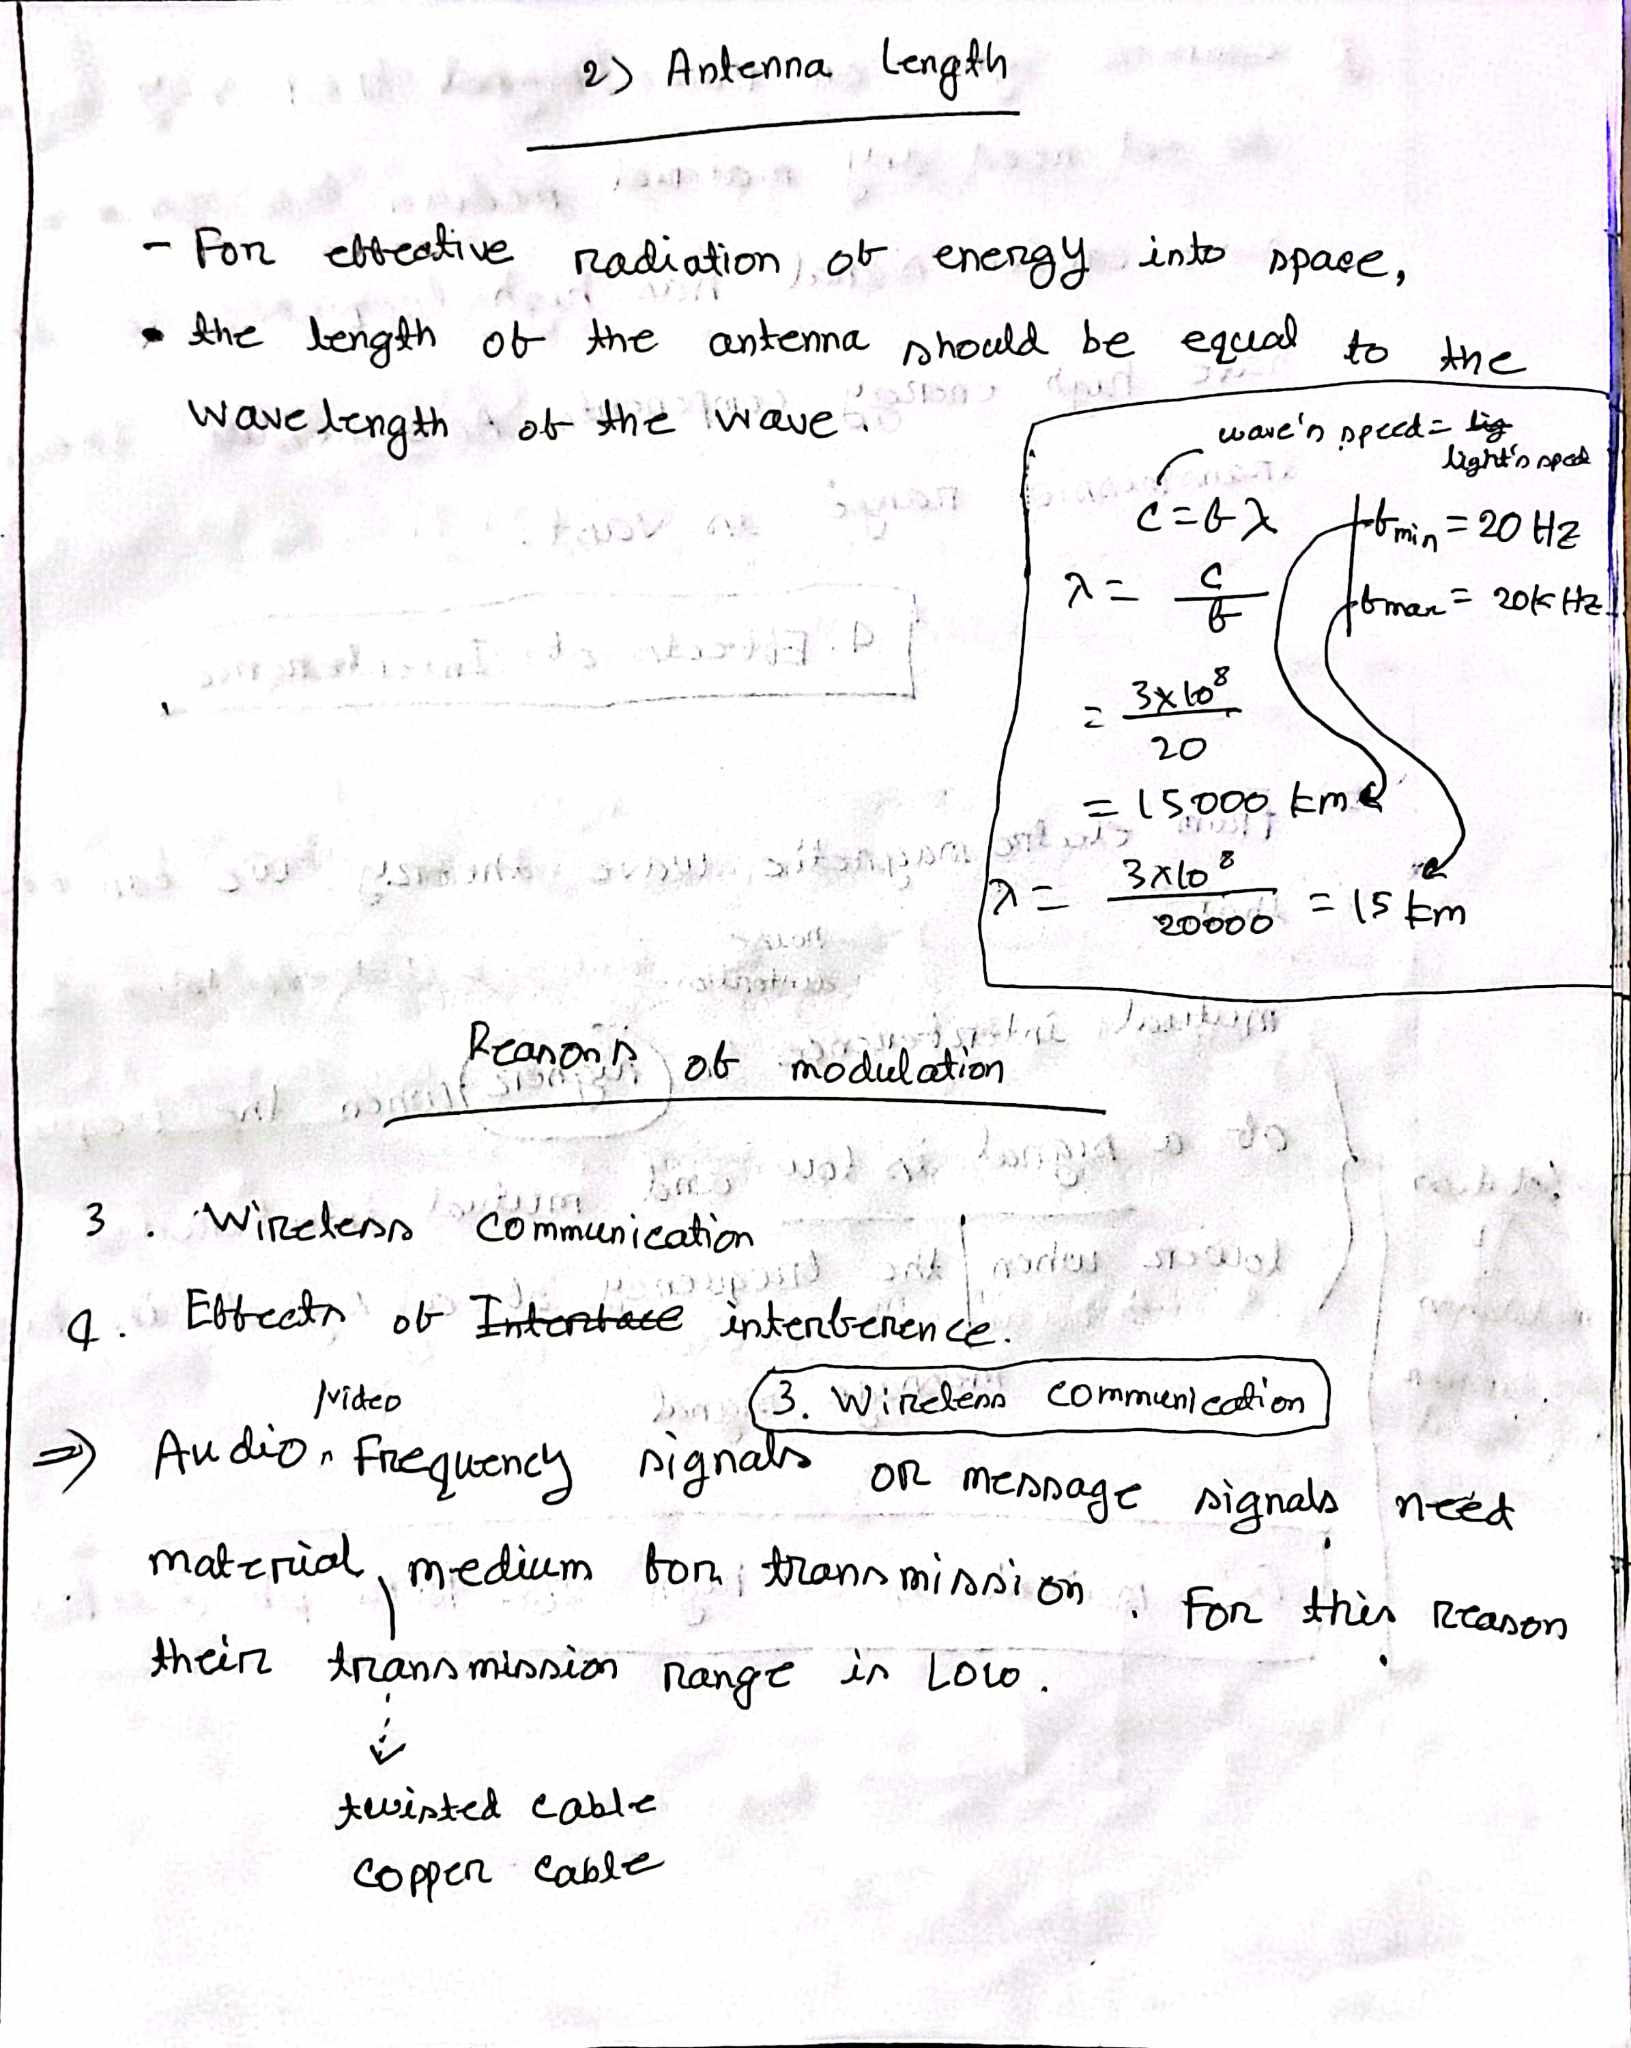 2) Antenna Length
- For effective radiation of energy into space,
• the length of the antenna should be equal to the
wavelength of the wave.
wave's speed = lig
light's speed
c = f λ
fmin = 20 Hz
λ = c / f
fmax = 20k Hz
= 3×10⁸ / 20
= 15000 km
λ = 3×10⁸ / 20000 = 15 km
Reasons of modulation
3. Wireless communication
4. Effects of Interface interference.
3. Wireless communication
/video
⇒ Audio frequency signals or message signals need
material medium for transmission. For this reason
their transmission range is Low.
twisted cable
copper cable